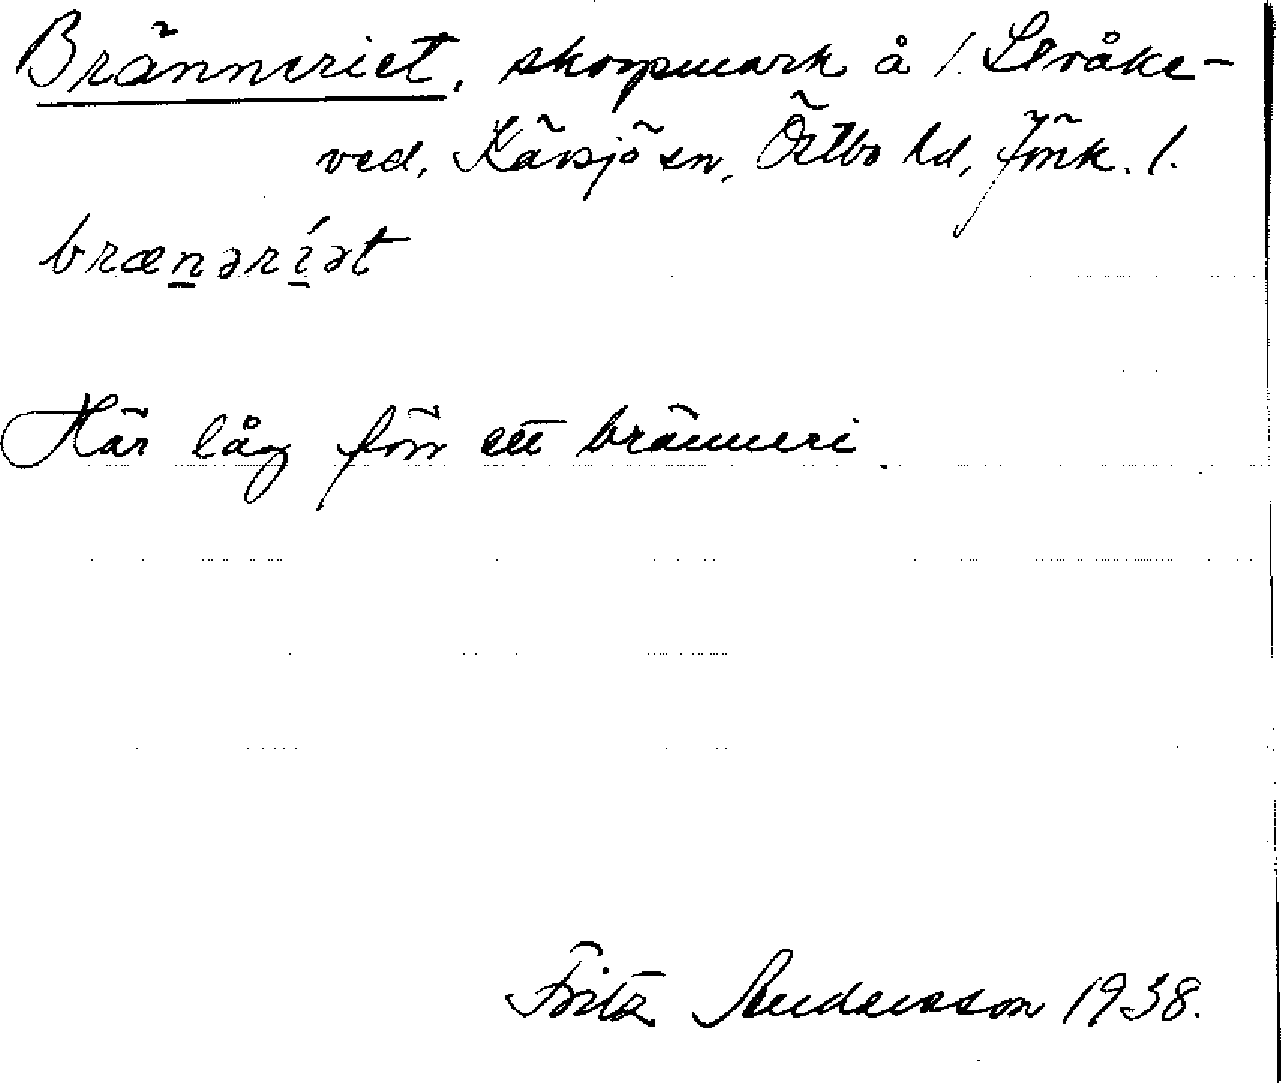 Bränneriet, skogsmark å 1. Stråke-
ved, Kävsjö sn, Östbo hd, Jönk. l.
brænəríət
Här låg förr ett bränneri.
Fritz Andersson 1938.